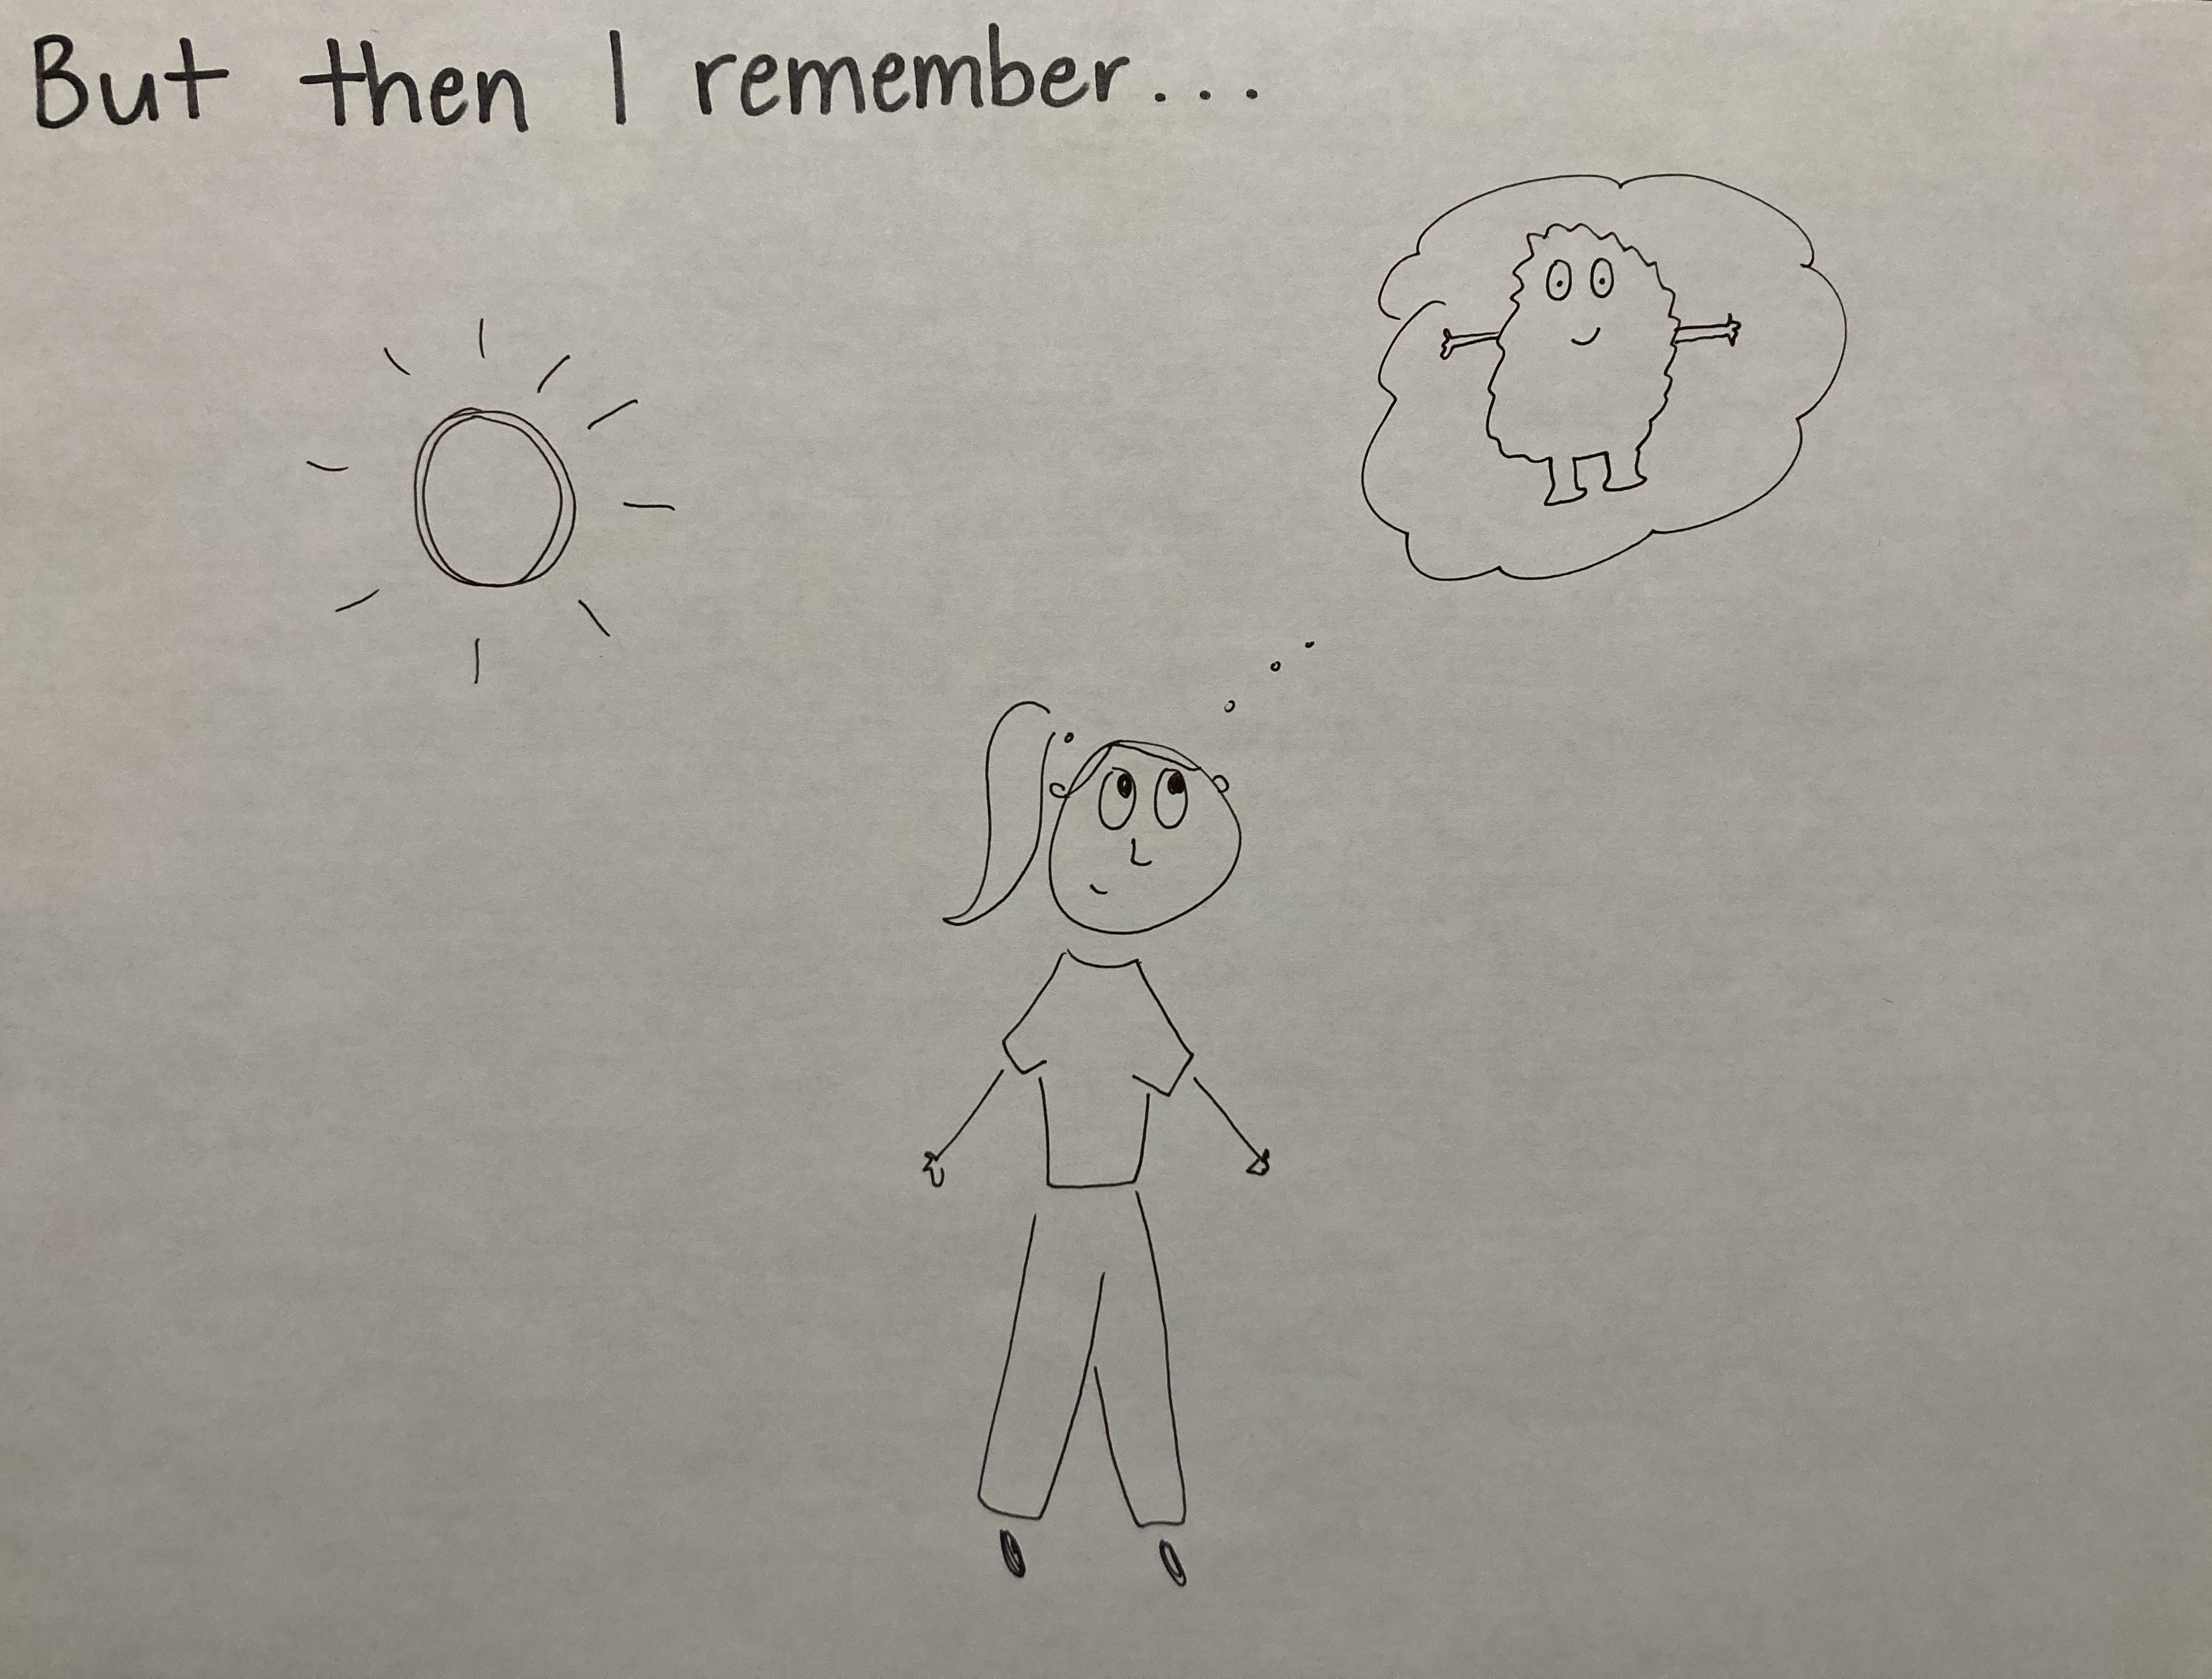 But then I remember...